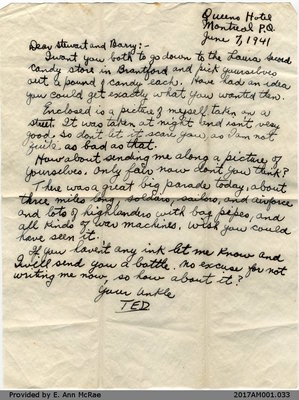 Queens Hotel
Montreal P.Q.
June 7/1941
Dear Stewart and Barry:-
I want you both to go down to the Laura Secord
candy store in Brantford and pick yourselves
out ½ pound of candy each. Have had an idea
you could get exactly what you wanted then
Enclosed is a picture of myself taken in a
street. It was taken at night and isnt very
good. So dont let it scare you, as I am not
quite as bad as that.
How about sending me along a picture of
yourselves. Only fair now dont you think?
There was a great big parade today, about
three miles long, soldiers, sailors, and airforce
and lots of highlanders with bag pipes, and
all kinds of war machines. Wish you could
have seen it.
If you havent any ink let me know and
I will send you a bottle. No excuse for not
writing me now, so how about it?
Your Unkle
TED
Provided by E. Ann McRae
2017AM001.033